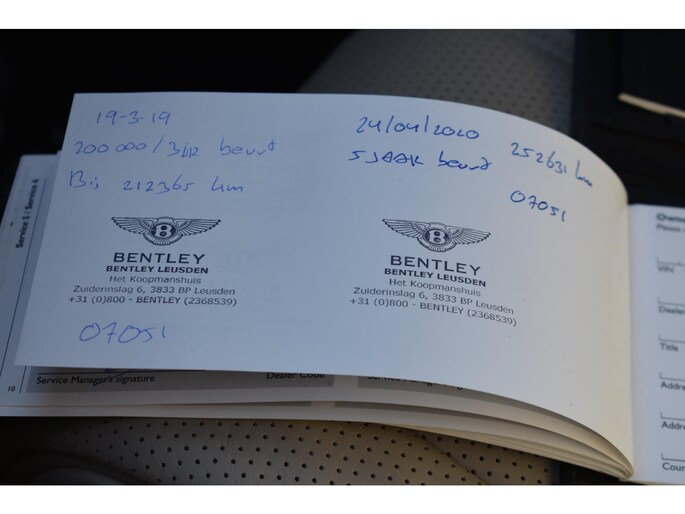 19-3-19
200 000 / 3JR beurt
Bij 212365 km
BENTLEY
BENTLEY LEUSDEN
Het Koopmanshuis
Zuiderinslag 6, 3833 BP Leusden
+31 (0)800 - BENTLEY (2368539)
07051
24/04/2020 252631 km
5 JAAR beurt
07051
B
BENTLEY
BENTLEY LEUSDEN
Het Koopmanshuis
Zuiderinslag 6, 3833 BP Leusden
+31 (0)800 - BENTLEY (2368539)
Service 5 / Service 6
10
Service Manager's signature
Dealer Code
Owne
Please
VIN
Dealer
Title
Addre
Addre
Coun